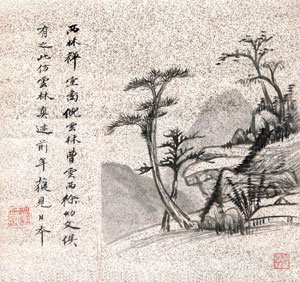 西林禪室圖倪雲林曹雲西徐幼文俱
有之此仿雲林真迹前年獲見日本